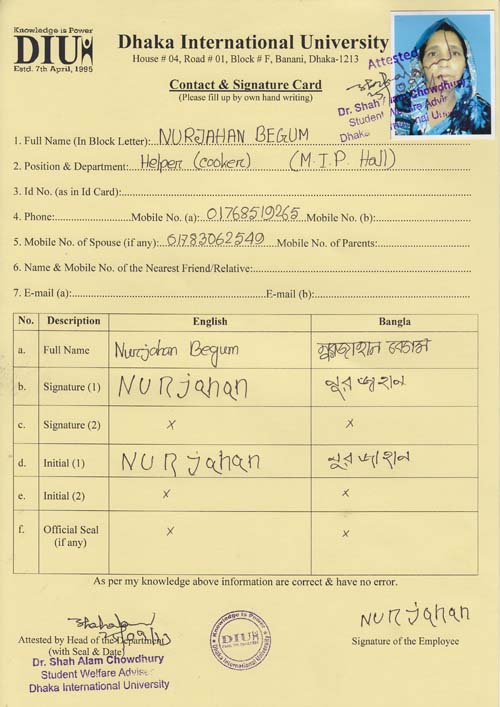 Knowledge is Power
DIU
Estd. 7th April, 1995
Dhaka International University
House # 04, Road # 01, Block # F, Banani, Dhaka-1213
Contact & Signature Card
(Please fill up by own hand writing)
Attested
Dr. Shah Alam Chowdhury
Student Welfare Advis
Dhaka International University
1. Full Name (In Block Letter): NURJAHAN BEGUM
2. Position & Department: Helper (cooker) (M.I.P. Hall)
3. Id No. (as in Id Card):
4. Phone: Mobile No. (a): 01768519265 Mobile No. (b):
5. Mobile No. of Spouse (if any): 01783062549 Mobile No. of Parents:
6. Name & Mobile No. of the Nearest Friend/Relative:
7. E-mail (a): E-mail (b):
No. Description English Bangla
a. Full Name Nurjahan Begum নুরজাহান বেগম
b. Signature (1) NURjahan নুরজাহান
c. Signature (2) x x
d. Initial (1) NURjahan নুরজাহান
e. Initial (2) x x
f. Official Seal (if any) x x
As per my knowledge above information are correct & have no error.
NURjahan
Attested by Head of the Department
(with Seal & Date)
Signature of the Employee
Dr. Shah Alam Chowdhury
Student Welfare Adviser
Dhaka International University
Knowledge is Power
DIU
Dhaka International University